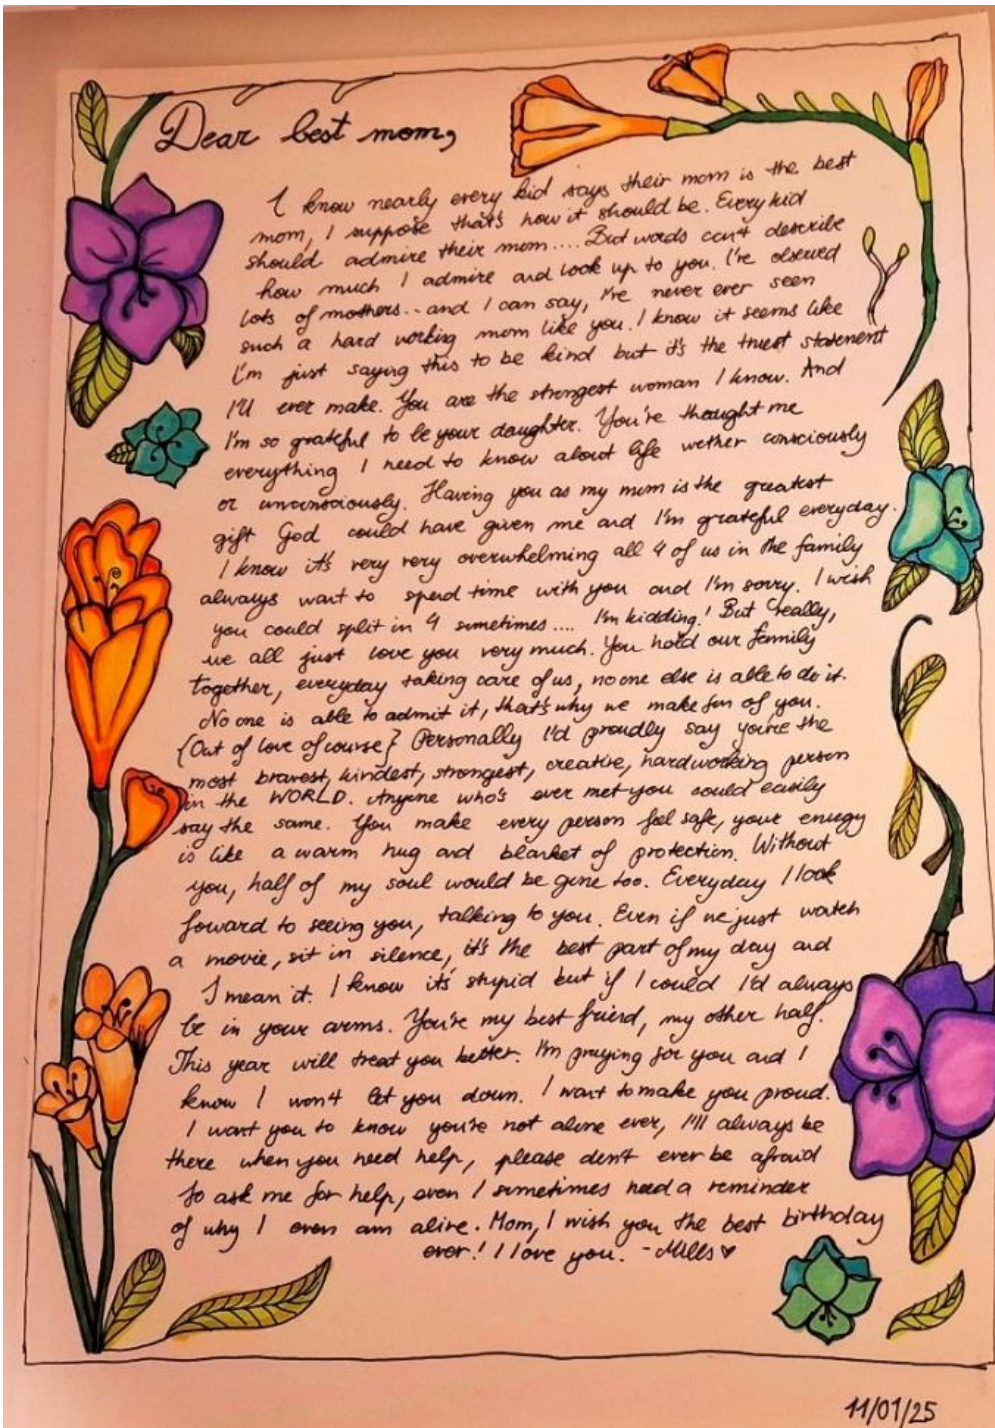 Dear best mom,
I know nearly every kid says their mom is the best
mom, I suppose that's how it should be. Every kid
should admire their mom.... But words can't describe
how much I admire and look up to you. I've obsered
lots of mothers.. and I can say, I've never ever seen
such a hard working mom like you. I know it seems like
I'm just saying this to be kind but it's the truest statement
I'll ever make. You are the strongest woman I know. And
I'm so grateful to be your daughter. You're thaught me
everything I need to know about life wether consciously
or unconsciously. Having you as my mom is the greatest
gift God could have given me and I'm grateful everyday.
I know it's very very overwhelming all 4 of us in the family
always want to spend time with you and I'm sorry. I wish
you could split in 4 sometimes.... I'm kidding! But really,
we all just love you very much. You hold our femily
together, everyday taking care of us, no one else is able to do it.
No one is able to admit it, that's why we make fun of you.
{Out of love of course} Personally I'd proudly say you're the
most bravest, kindest, strongest, creative, hardworking person
in the WORLD. Anyone who's ever met you could easily
say the same. You make every person feel safe, your energy
is like a warm hug and blanket of protection. Without
you, half of my soul would be gone too. Everyday I look
foward to seeing you, talking to you. Even if we just watch
a movie, sit in silence, it's the best part of my day and
I mean it. I know it's stupid but if I could I'd always
be in your arms. You're my best friend, my other half.
This year will treat you better. I'm praying for you and I
know I won't let you down. I want to make you proud.
I want you to know you're not alone ever, I'll always be
there when you need help, please don't ever be afraid
to ask me for help, even I sometimes need a reminder
of why I even am alive. Mom, I wish you the best birthday
ever! I love you. - Mills ♥
11/01/25